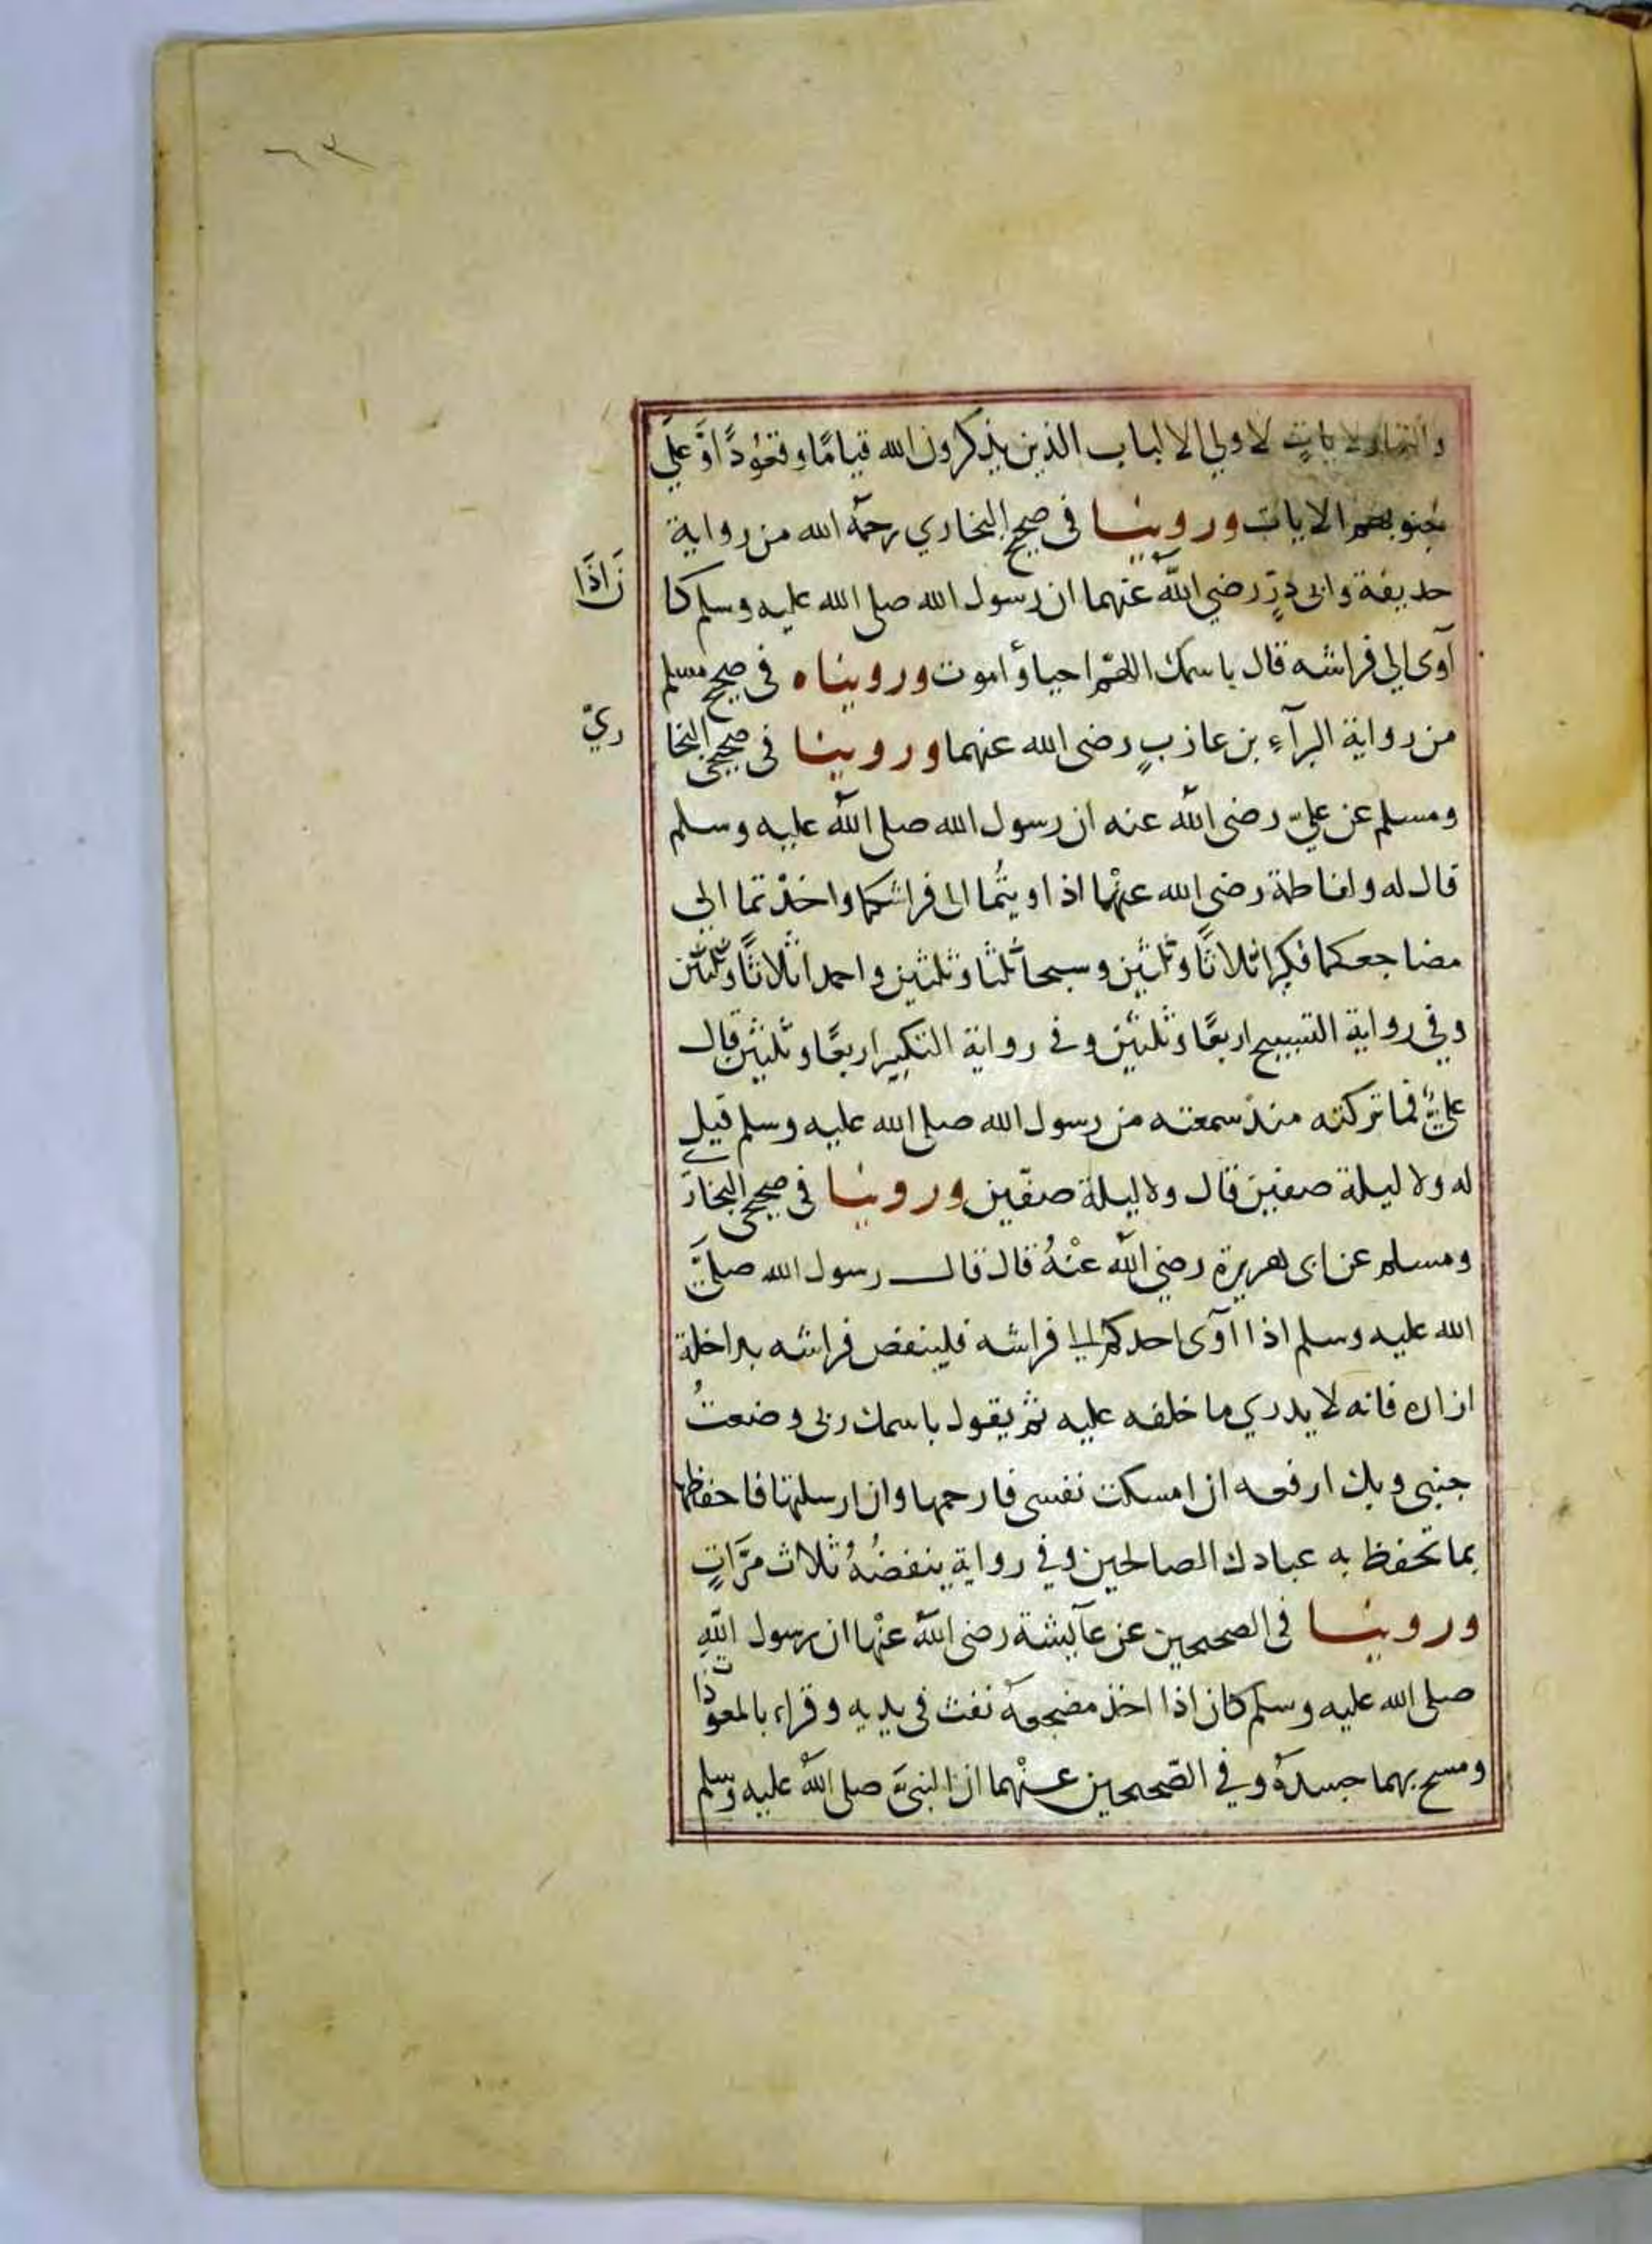 ٦٣
والنهار لايات لاولي الالباب الذين يذكرون الله قيامًا وقعُودًا اوَّ علَي
جنوبهم الايات وروينا في صحيح البخاري رحمهُ الله من رواية
حديفة وابى ذرٍّ رضي اللّٰه عنهما ان رسول الله صلى الله عليه وسلم كا نَ اذَا
آوى الي فراشه قال باسمك اللهّم احيا وأموت وروينا ه في صحيح مسلم
من رواية البرآءِ بن عازبٍ رضى الله عنهما وروينا في صحيحى البخا ريّ
ومسلم عن عليّ رضى اللّٰه عنه ان رسول الله صلى اللّٰه عليه وسلم
قال له ولفاطمة رضى الله عنْهما اذا اويتُما الى فراشكما واخذْتما الى
مضاجعكما فكبرا ثلاثًا وثلثين وسبحا ثلثا وثلثين واحمدا ثلاثًا وثلثين
وفي رواية التسبيح اربعًا وثلثين وفي رواية التكبير اربعًا وثلثين قال
عليٌّ فما تركته منذ سمعته من رسول الله صلى الله عليه وسلم قيل
له ولا ليلة صفين قال ولا ليلة صفّين وروينا في صحيحى البخارَي
ومسلم عن ابى هريرة رضي اللّٰه عنْهُ قال قال رسول الله صلَّى
الله عليه وسلم اذا اآوى احدكم الى فراشه فلينفض فراشه بداخلة
ازاره فانه لا يدري ما خلفه عليه ثم يقول باسمك ربى وضعتُ
جنبى وبك ارفعه ان امسكت نفسى فارحمها وان ارسلتها فاحفظها
بما تحفظ به عبادك الصالحين وفي رواية ينفضُهُ ثلاث مرَّاتٍ
وروينا في الصحيحين عن عآيشة رضى اللّٰه عنْها ان رسول اللّٰهِ
صلى الله عليه وسلم كان اذا اخذ مضجعهُ نفث فى يديه وقراء بالمعوّذات
ومسح بهما جسدهُ وفي الصّحيحين عنْهما ان النبىَّ صلى اللّٰه عليه وسلم